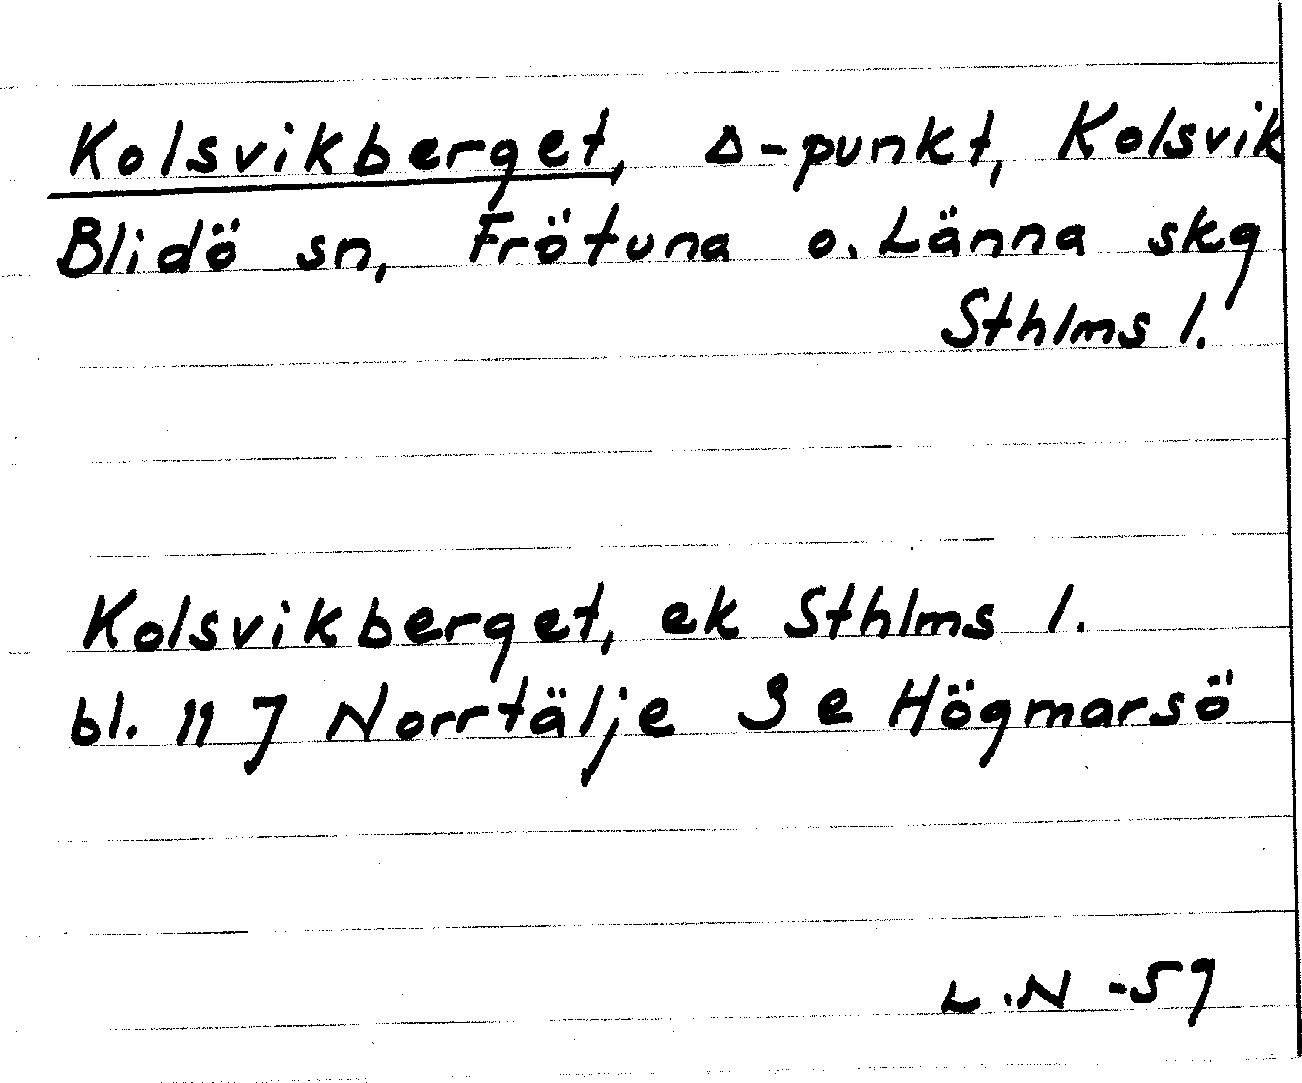 Kolsvikberget, Δ-punkt, Kolsvik
Blidö sn, Frötuna o. Länna skg
Sthlms l.
Kolsvikberget, ek Sthlms l.
bl. 11 J Norrtälje 3 e Högmarsö
L.N -59